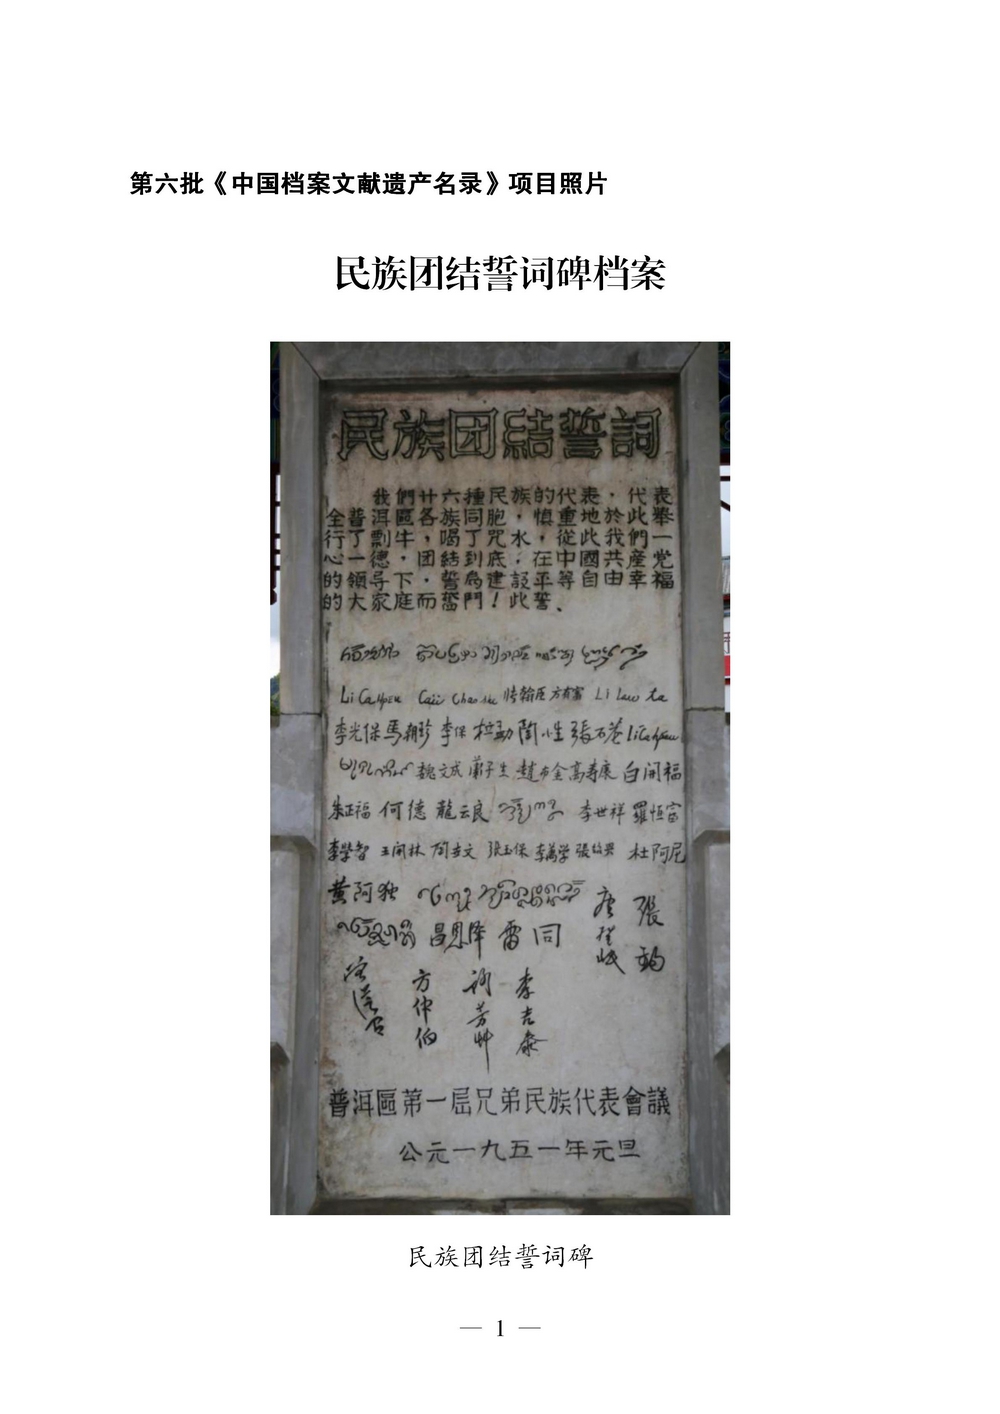 第六批《中国档案文献遗产名录》项目照片
民族团结誓词碑档案
民族团結誓詞
我們廿六種民族的代表，代表
全普洱區各族同胞，慎重地於此舉
行了剽牛，喝了咒水，從此我們一
心一德，团結到底，在中國共産党
的領导下，誓為建設平等自由幸福
的大家庭而奮鬥！此誓、
Li Cahpeu
方有富
李光保 馬朝珍 李保 張石菴 LiCahpeu
魏文成 蕭子生 趙布金 高寿康 白開福
朱正福 何德 龍云良 李世祥 羅恒富
李學智 王開林 張玉保 李萬学 杜阿尼
黄阿独
唐登岷 張鈞
昌恩泽 雷同
方仲伯 李吉泰
普洱區第一屆兄弟民族代表會議
公元一九五一年元旦
民族团结誓词碑
— 1 —